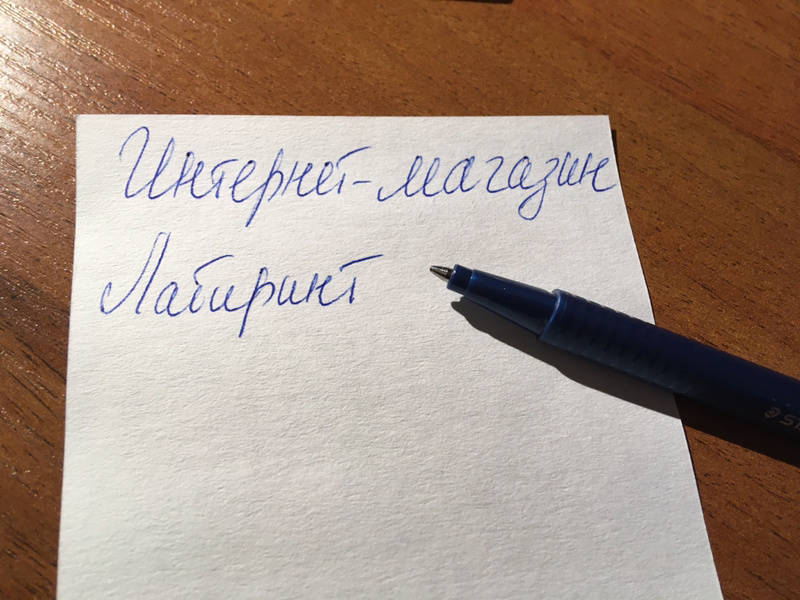 Интернет-магазин
Лабиринт